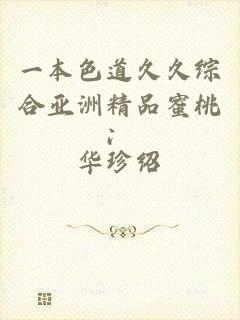 一本色道久久综
合亚洲精品蜜桃
;
华珍绍